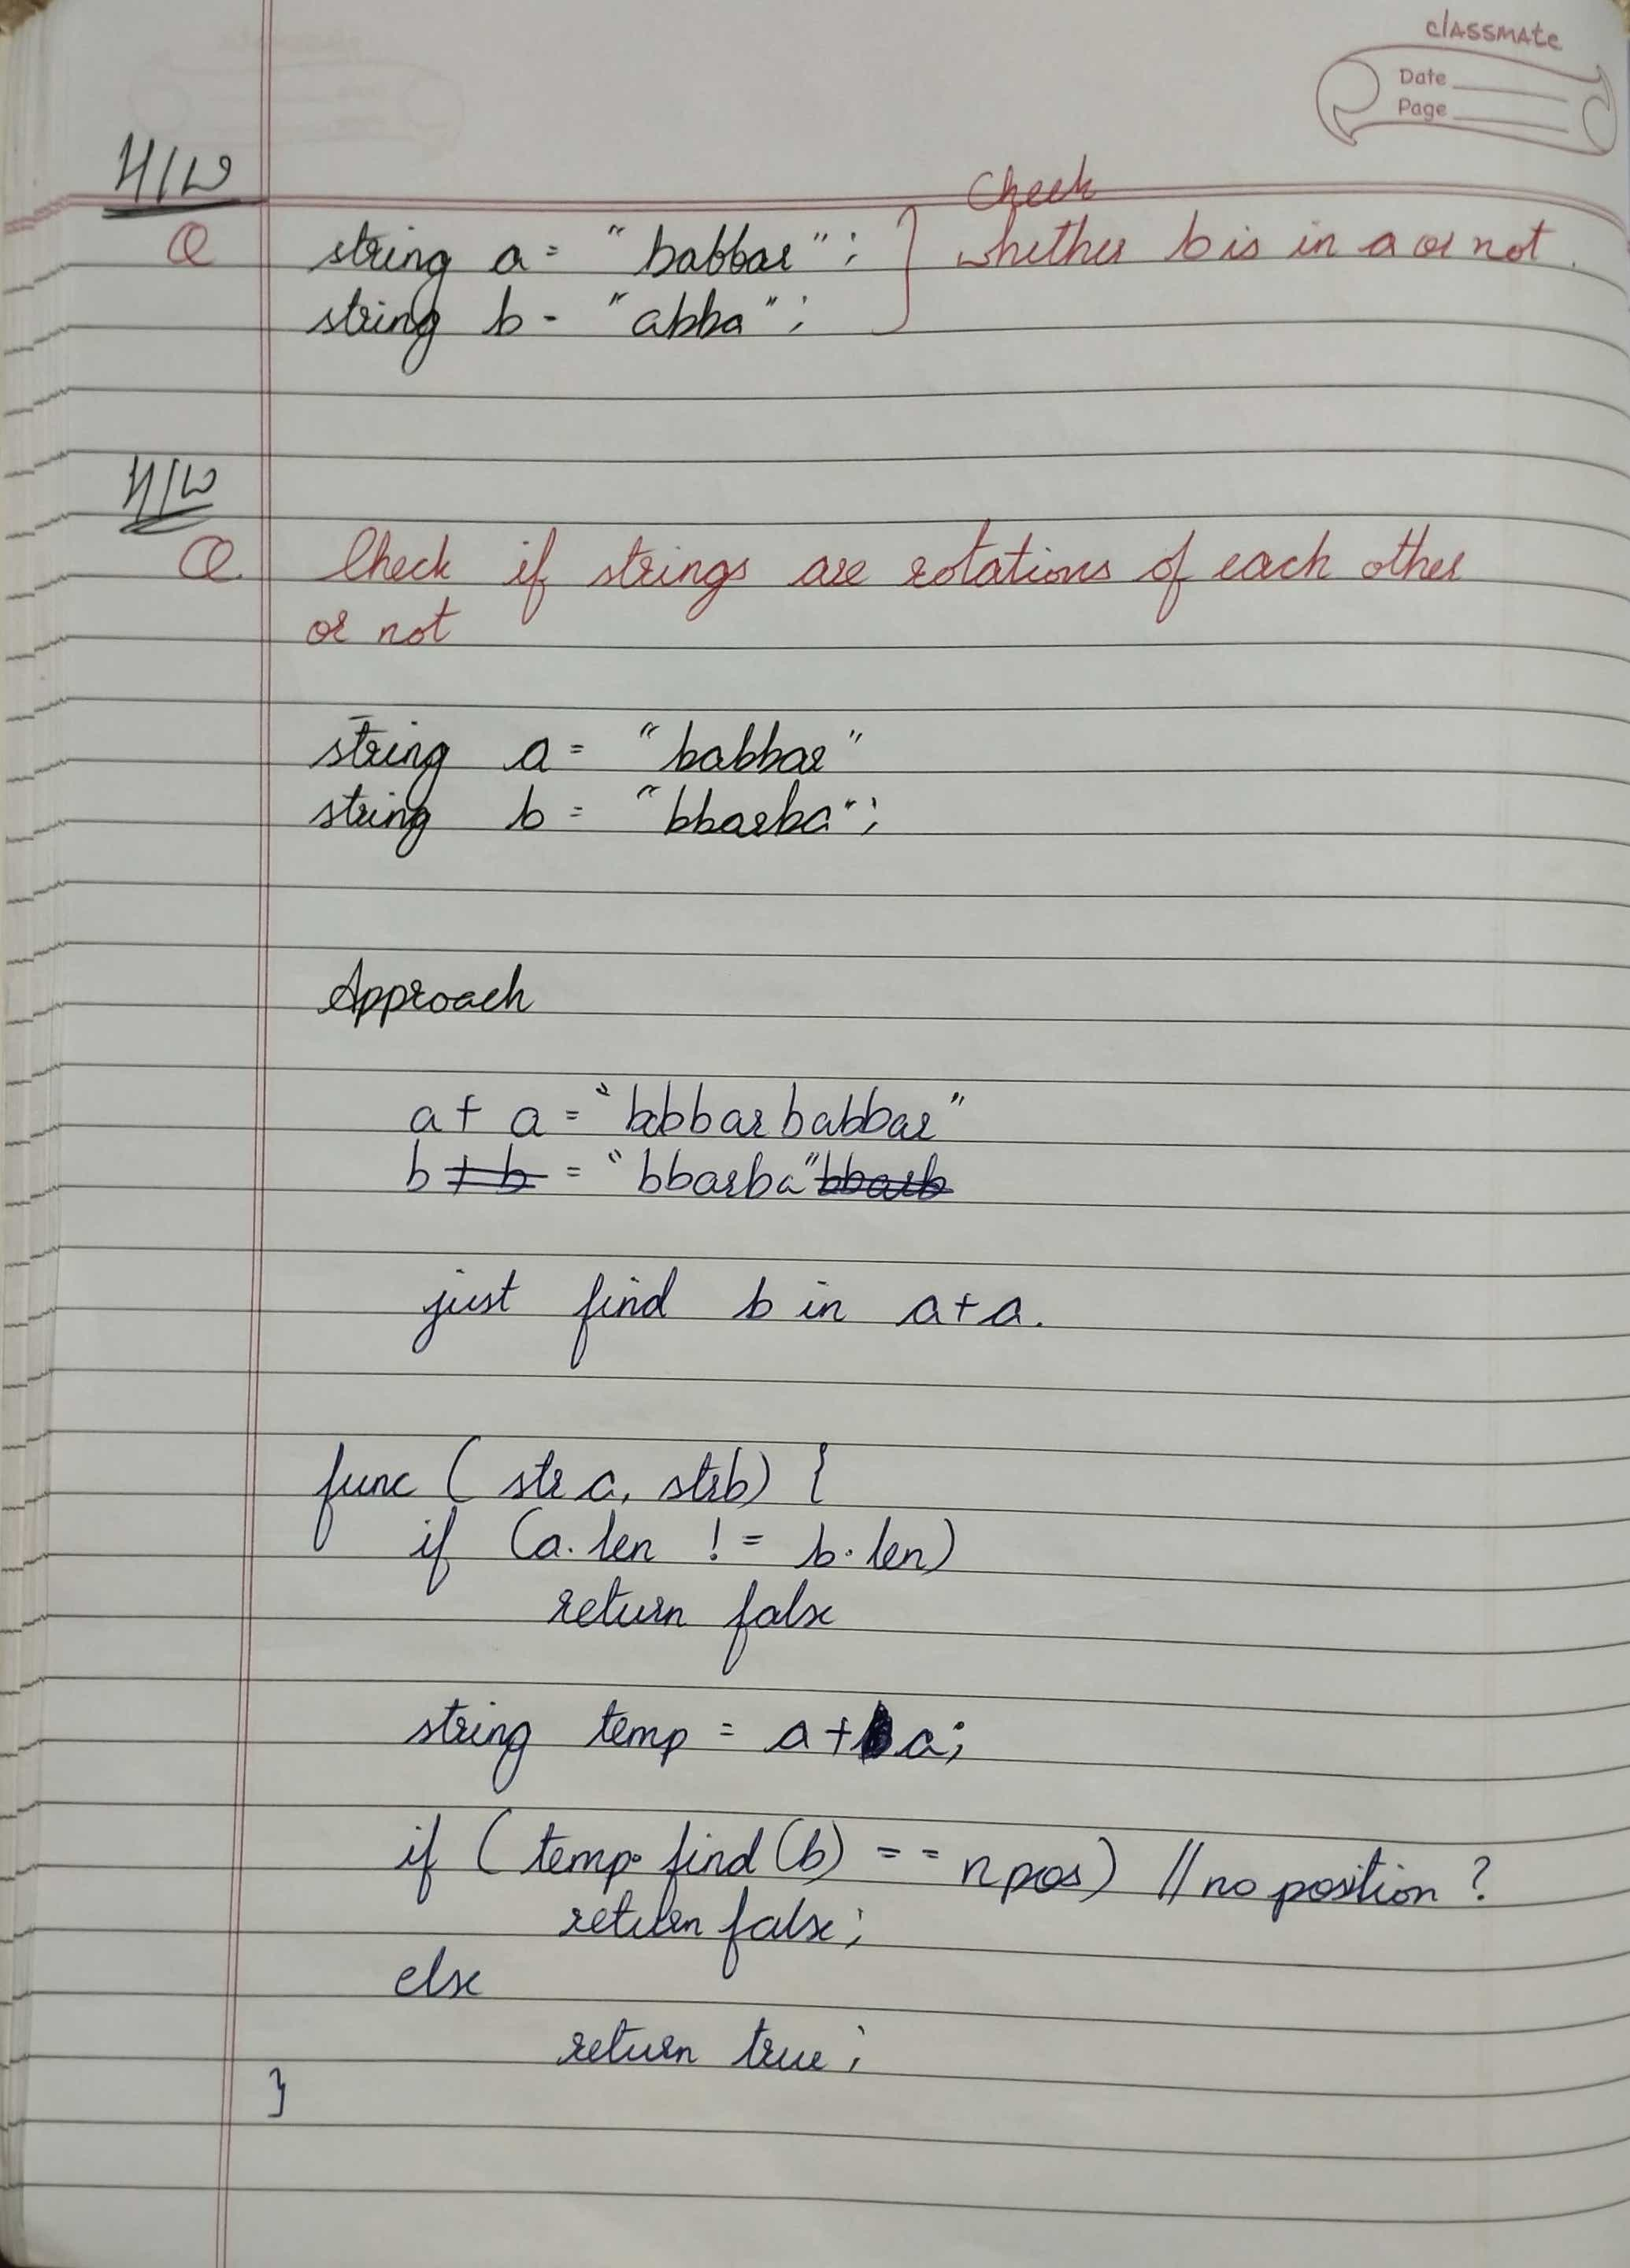 classmate
Date
Page
H/W
Check
Q string a = "babbar"; } whether b is in a or not.
string b = "abba";
H/W
Q. Check if strings are rotations of each other
or not
string a = "babbar"
string b = "bbarba";
Approach
a + a = "babbarbabbar"
b + b = "bbarba" bbarb
just find b in a+a.
func ( str a, str b) {
if (a.len != b.len)
return false
string temp = a + a;
if ( temp.find(b) == npos) // no position ?
return false;
else
return true;
}